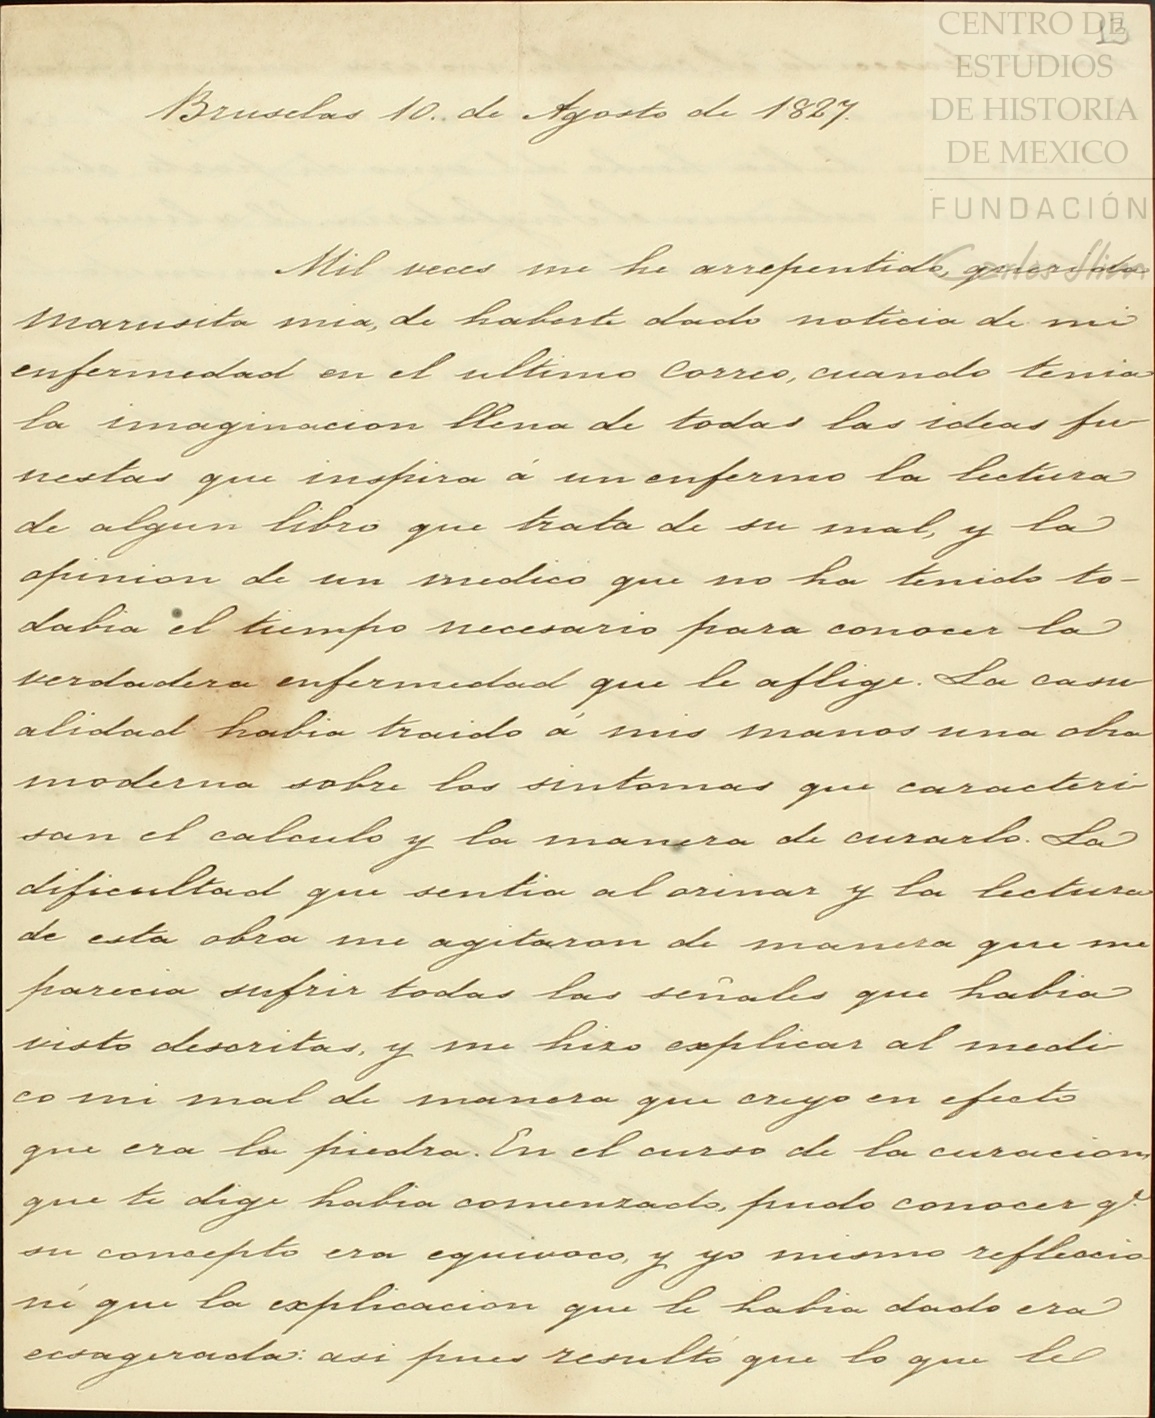 CENTRO DE
ESTUDIOS
DE HISTORIA
DE MEXICO
FUNDACIÓN
Carlos Slim
13
Bruselas 10. de Agosto de 1827.
Mil veces me he arrepentido, querida
Marusita mia, de haberte dado noticia de mi
enfermedad en el ultimo correo, cuando tenia
la imaginacion llena de todas las ideas fu
nestas que inspira á un enfermo la lectura
de algun libro que trata de su mal, y la
opinion de un medico que no ha tenido to-
dabia el tiempo necesario para conocer la
verdadera enfermedad que le aflige. La casu
alidad habia traido á mis manos una obra
moderna sobre los sintomas que caracteri
san el calculo y la manera de curarlo. La
dificultad que sentia al orinar y la lectura
de esta obra me agitaron de manera que me
parecia sufrir todas las señales que habia
visto descritas, y me hizo explicar al medi
co mi mal de manera que creyo en efecto
que era la piedra. En el curso de la curacion,
que te dige habia comenzado, pudo conocer q.e
su concepto era equivoco, y yo mismo refleccio
né que la explicacion que le habia dado era
ecsagerada: asi pues resultó que lo que le